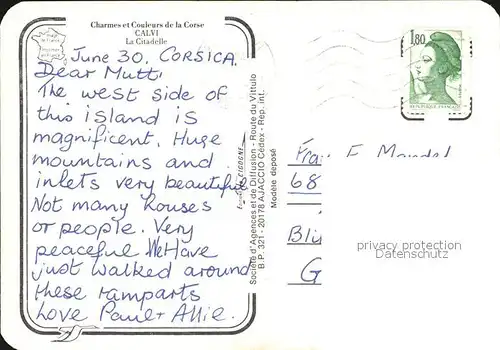 Charmes et Couleurs de la Corse
CALVI
La Citadelle
June 30. CORSICA.
Dear Mutti
The west side of
this island is
magnificent. Huge
mountains and
inlets very beautiful
Not many houses
or people. Very
peaceful We Have
just walked around
these ramparts
Love Paul + Allie.
Société d'Agences et de Diffusion - Route du Vittulo
B.P. 321 - 20178 AJACCIO Cédex - Rep. int.
Modèle déposé
1,80
68
G
privacy protection
Datenschutz